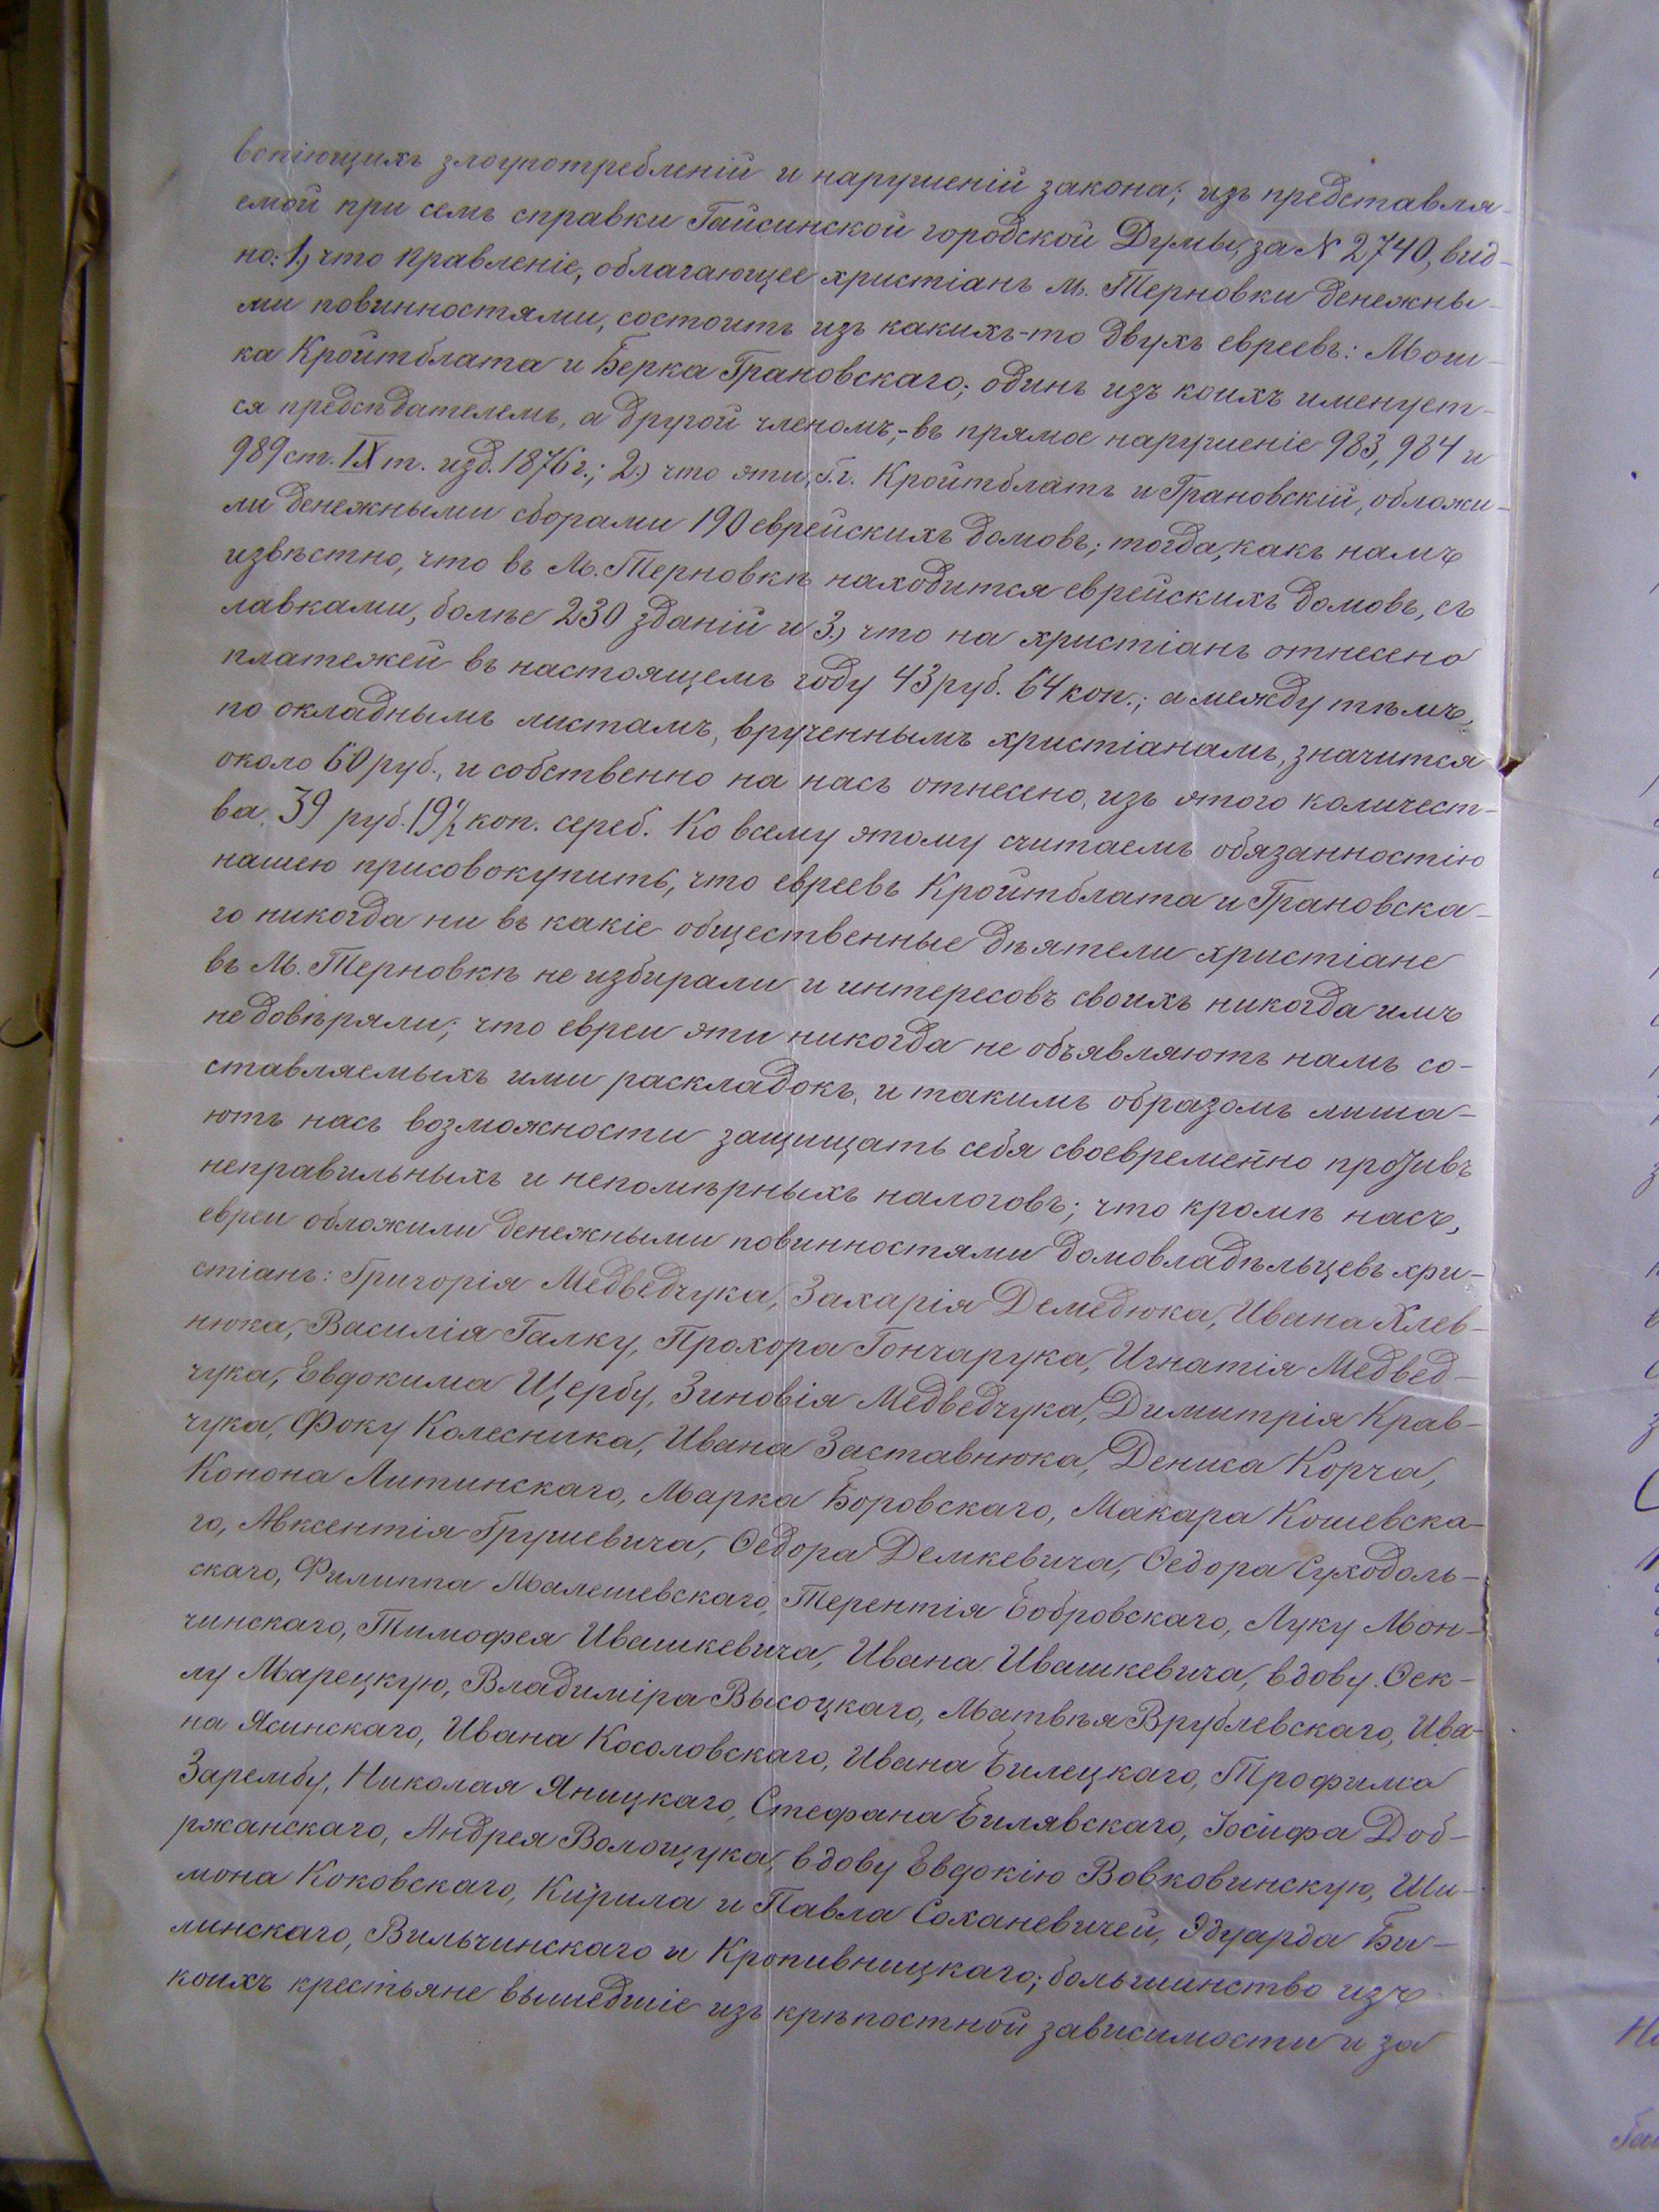 вопіющихъ злоупотребленій и нарушеній закона; изъ представля-
емой при семъ справки Гайсинской городской Думы, за № 2740, вид-
но: 1.) что правленіе, облагающее христіанъ м. Терновки денежны-
ми повинностями, состоитъ изъ какихъ-то двухъ евреевъ: Мош-
ка Кройтблата и Берка Грановскаго; одинъ изъ коихъ именует-
ся предсѣдателемъ, а другой членомъ,-въ прямое нарушеніе 983, 984 и
989 ст. IX т. изд. 1876 г.; 2.) что эти, г.г. Кройтблатъ и Грановскій, обложи-
ли денежными сборами 190 еврейскихъ домовъ; тогда, какъ намъ
извѣстно, что въ М. Терновкѣ находится еврейскихъ домовъ, съ
лавками, болѣе 230 зданій и 3.) что на христіанъ отнесено
платежей въ настоящемъ году 43 руб. 64 коп.; а между тѣмъ,
по окладнымъ листамъ, врученнымъ христіанамъ, значится
около 60 руб., и собственно на насъ отнесено, изъ этого количест-
ва, 39 руб. 19½ коп. сереб. Ко всему этому считаемъ обязанностію
нашею присовокупить, что евреевъ Кройтблата и Грановска-
го никогда ни въ какіе общественные дѣятели христіане
въ М. Терновкѣ не избирали и интересовъ своихъ никогда имъ
не довѣряли; что евреи эти никогда не объявляютъ намъ со-
ставляемыхъ ими раскладокъ, и такимъ образомъ лиша-
ютъ насъ возможности защищать себя своевременно противъ
неправильныхъ и непомѣрныхъ налоговъ; что кромѣ насъ,
евреи обложили денежными повинностями домовладѣльцевъ хри-
стіанъ: Григорія Медведчука, Захарія Демедюка, Ивана Хлев-
нюка, Василія Галку, Прохора Гончарука, Игнатія Медвед-
чука, Евдокима Щербу, Зиновія Медведчука, Димитрія Крав-
чука, Фоку Колесника, Ивана Заставнюка, Дениса Корча,
Конона Литинскаго, Марка Боровскаго, Макара Кошевска-
го, Авксентія Грушевича, Ѳедора Демкевича, Ѳедора Суходоль-
скаго, Филиппа Малешевскаго, Терентія Бобровскаго, Луку Мон-
чинскаго, Тимофея Ивашкевича, Ивана Ивашкевича, вдову Ѳек-
лу Марецкую, Владиміра Высоцкаго, Матвѣя Врублевскаго, Ива-
на Ясинскаго, Ивана Косоловскаго, Ивана Билецкаго, Трофима
Зарембу, Николая Яницкаго, Стефана Билявскаго, Іосифа Доб-
ржанскаго, Андрея Волощука, вдову Евдокію Вовковинскую, Ши-
мона Коковскаго, Кирила и Павла Соханевичей, Эдуарда Би-
линскаго, Вильчинскаго и Кропивницкаго; большинство изъ
коихъ крестьяне вышедшіе изъ крѣпостной зависимости и за